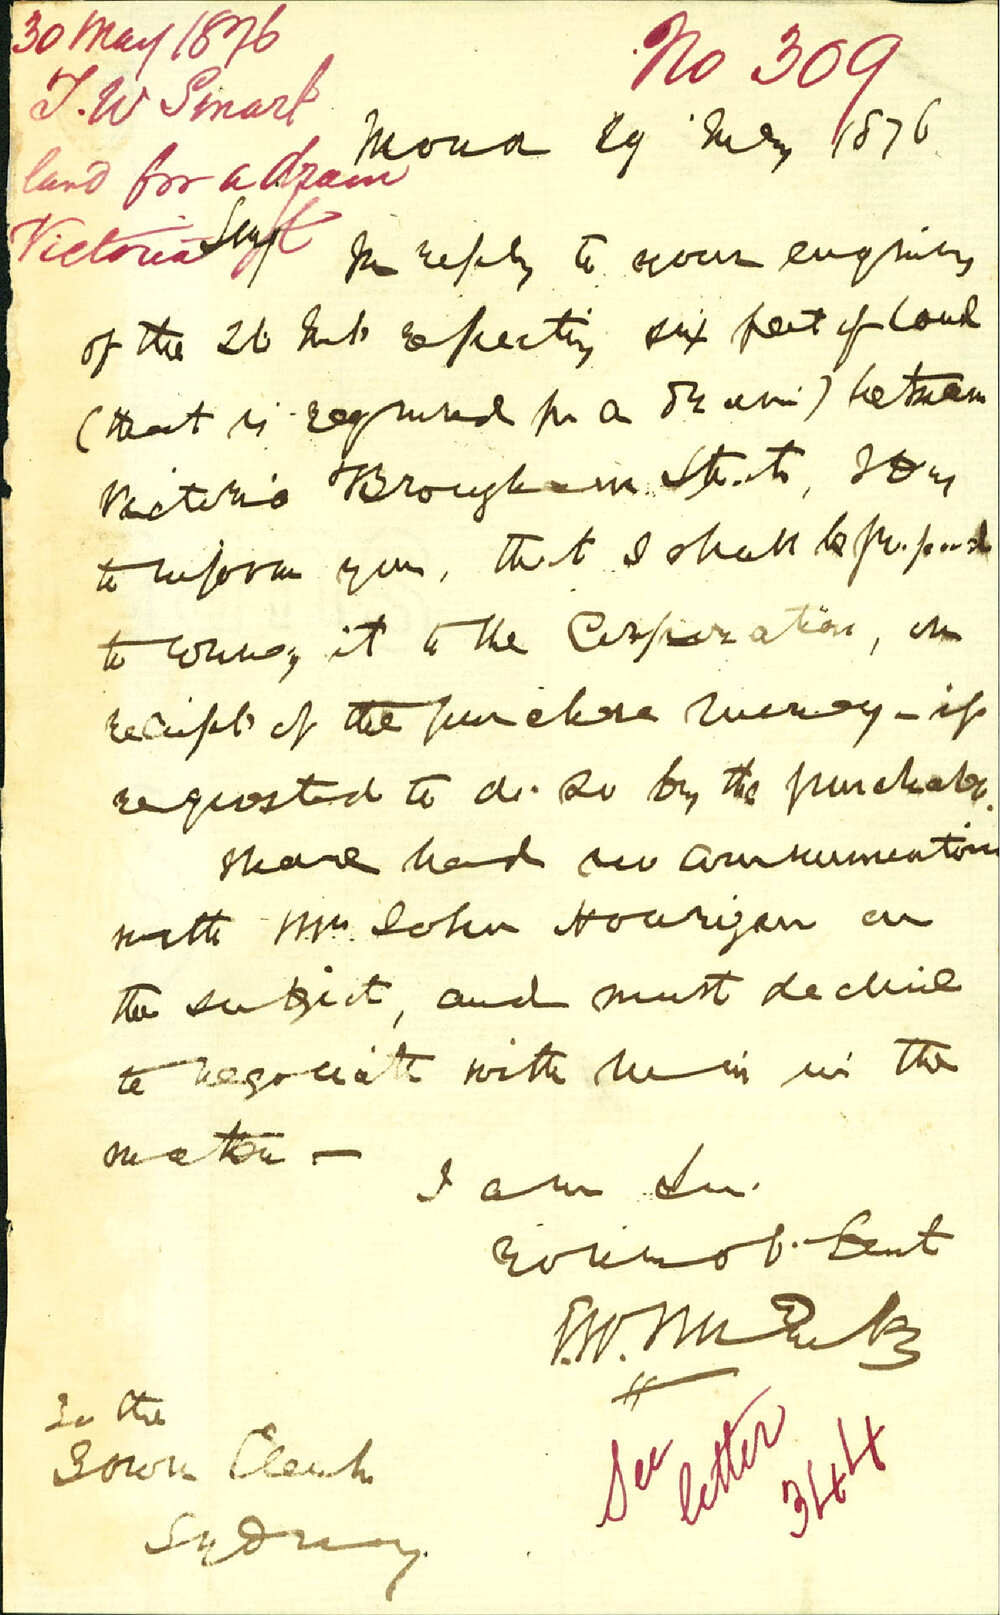 30 May 1876
T. W Smart
land for a drain
Victoria St
No 309
Mona 29 May 1876
Sir
In reply to your enquiry
of the 26 Inst respecting six feet of land
(that is required for a drain) between
Victoria Brougham Streets, I beg
to inform you, that I shall be prepared
to convey it to the Corporation, on
receipt of the purchase money - if
requested to do so by the purchaser.
I have had no communication
with Mr John Hourigan on
the subject, and must decline
to negociate with him in the
matter -
I am Sir.
Your most ob. Servt
T. W. Smart
To the
Town Clerk
Sydney.
See
letter
344